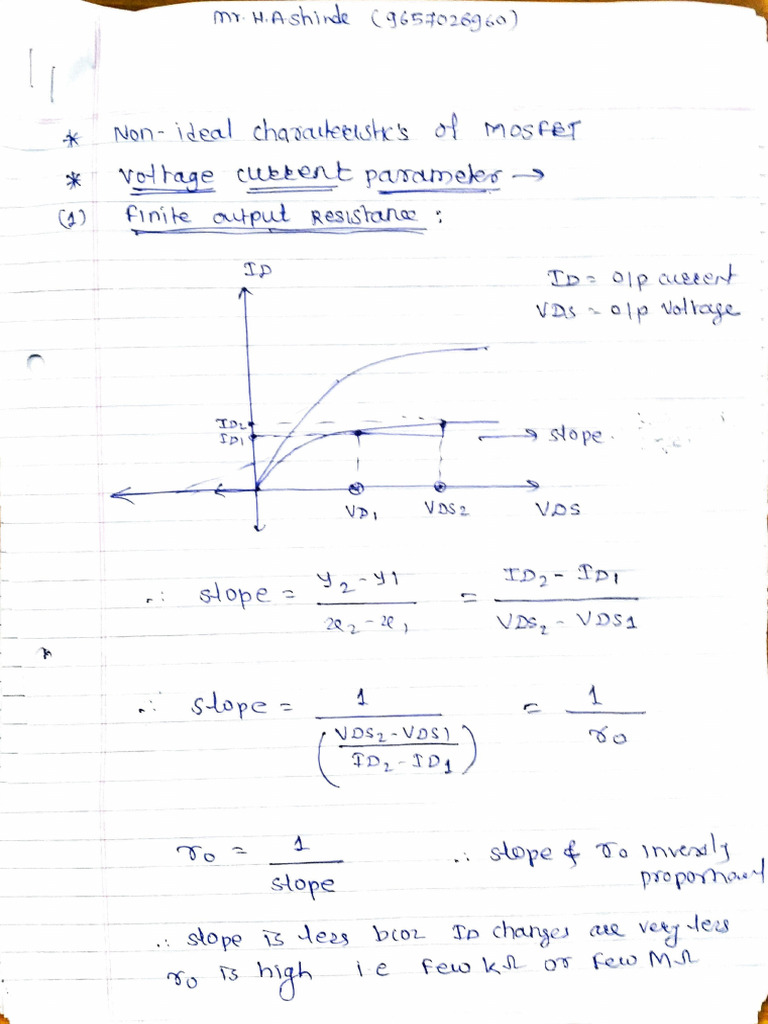 Mr. H.A shinde (9657026960)
* Non-ideal charactteristic's of MOSFET
* voltage current parameter →
(1) finite output Resistance :
ID
ID = o/p current
VDS = o/p voltage
ID2
ID1
→ slope.
VD1 VDS2 VDS
∴ slope = y2 - y1 / x2 - x1 = ID2 - ID1 / VDS2 - VDS1
∴ slope = 1 / (VDS2 - VDS1 / ID2 - ID1) = 1 / ro
ro = 1 / slope ∴ slope & ro inversly
proportional
∴ slope is less bcoz ID changes are very less
ro is high i.e few kΩ or few MΩ